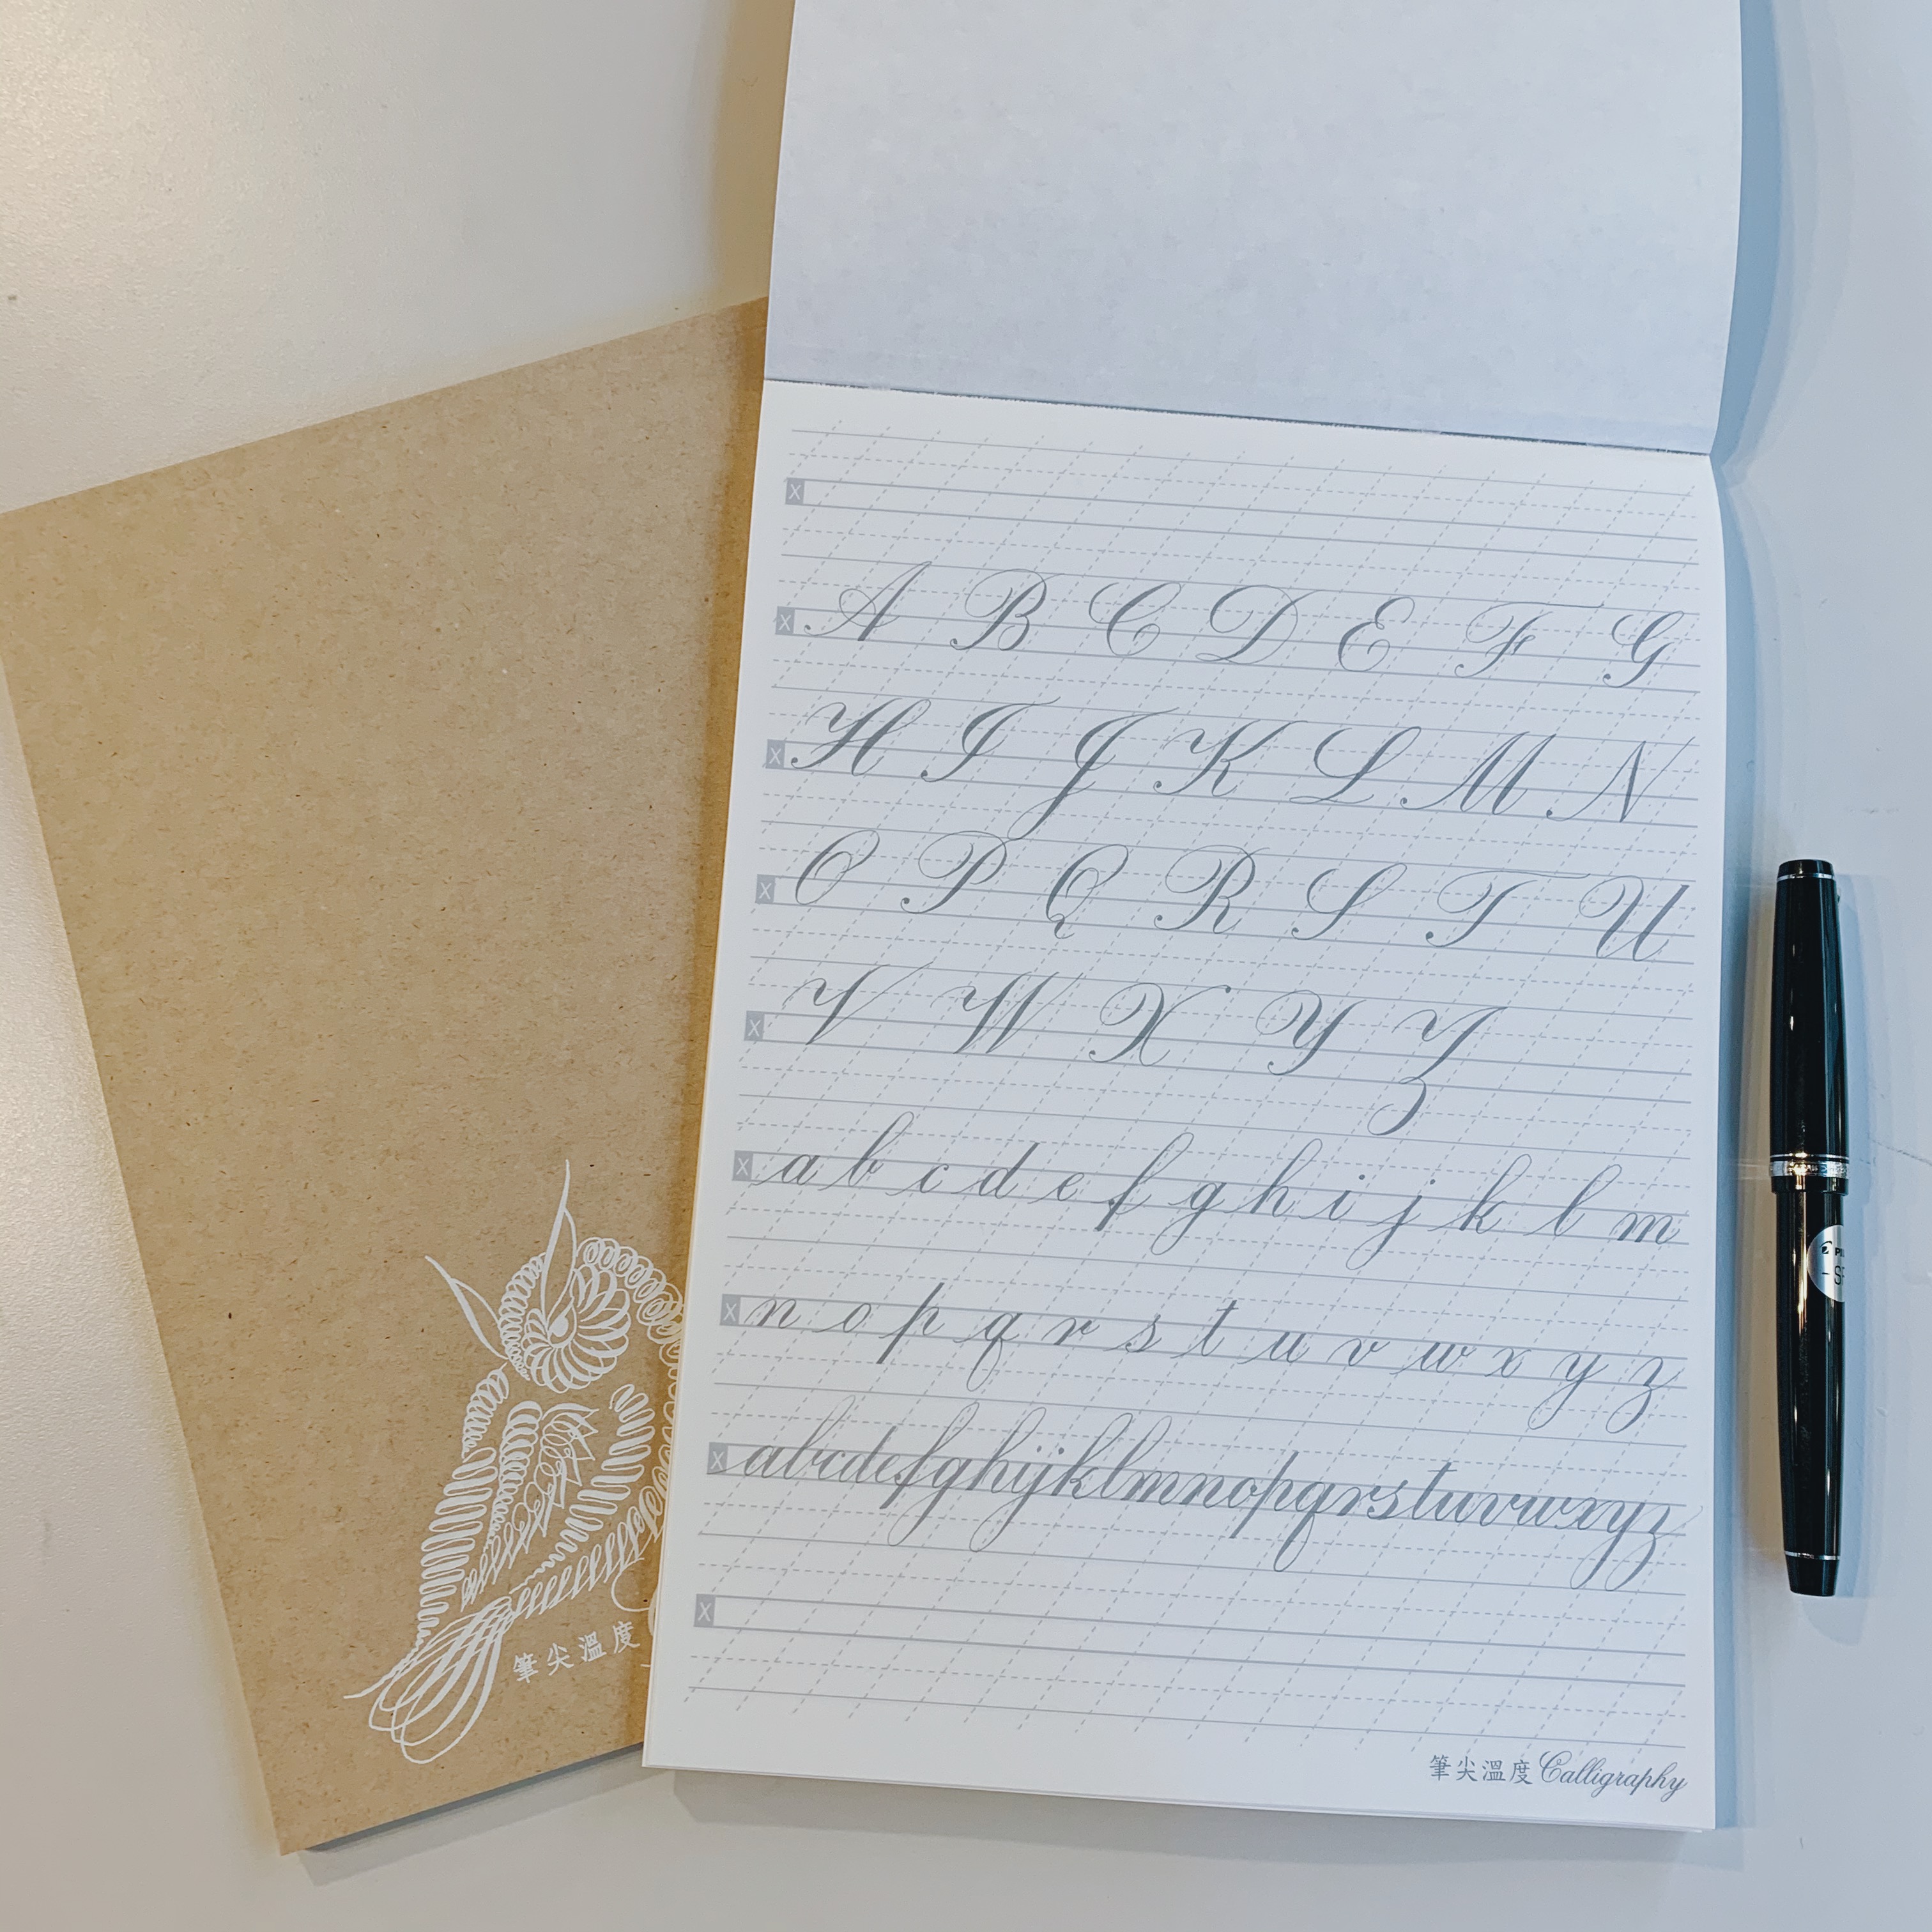 X
X A B C D E F G
X H I J K L M N
X O P Q R S T U
X V W X Y Z
X a b c d e f g h i j k l m
X n o p q r s t u v w x y z
X abcdefghijklmnopqrstuvwxyz
X
筆尖溫度 Calligraphy
筆尖溫度